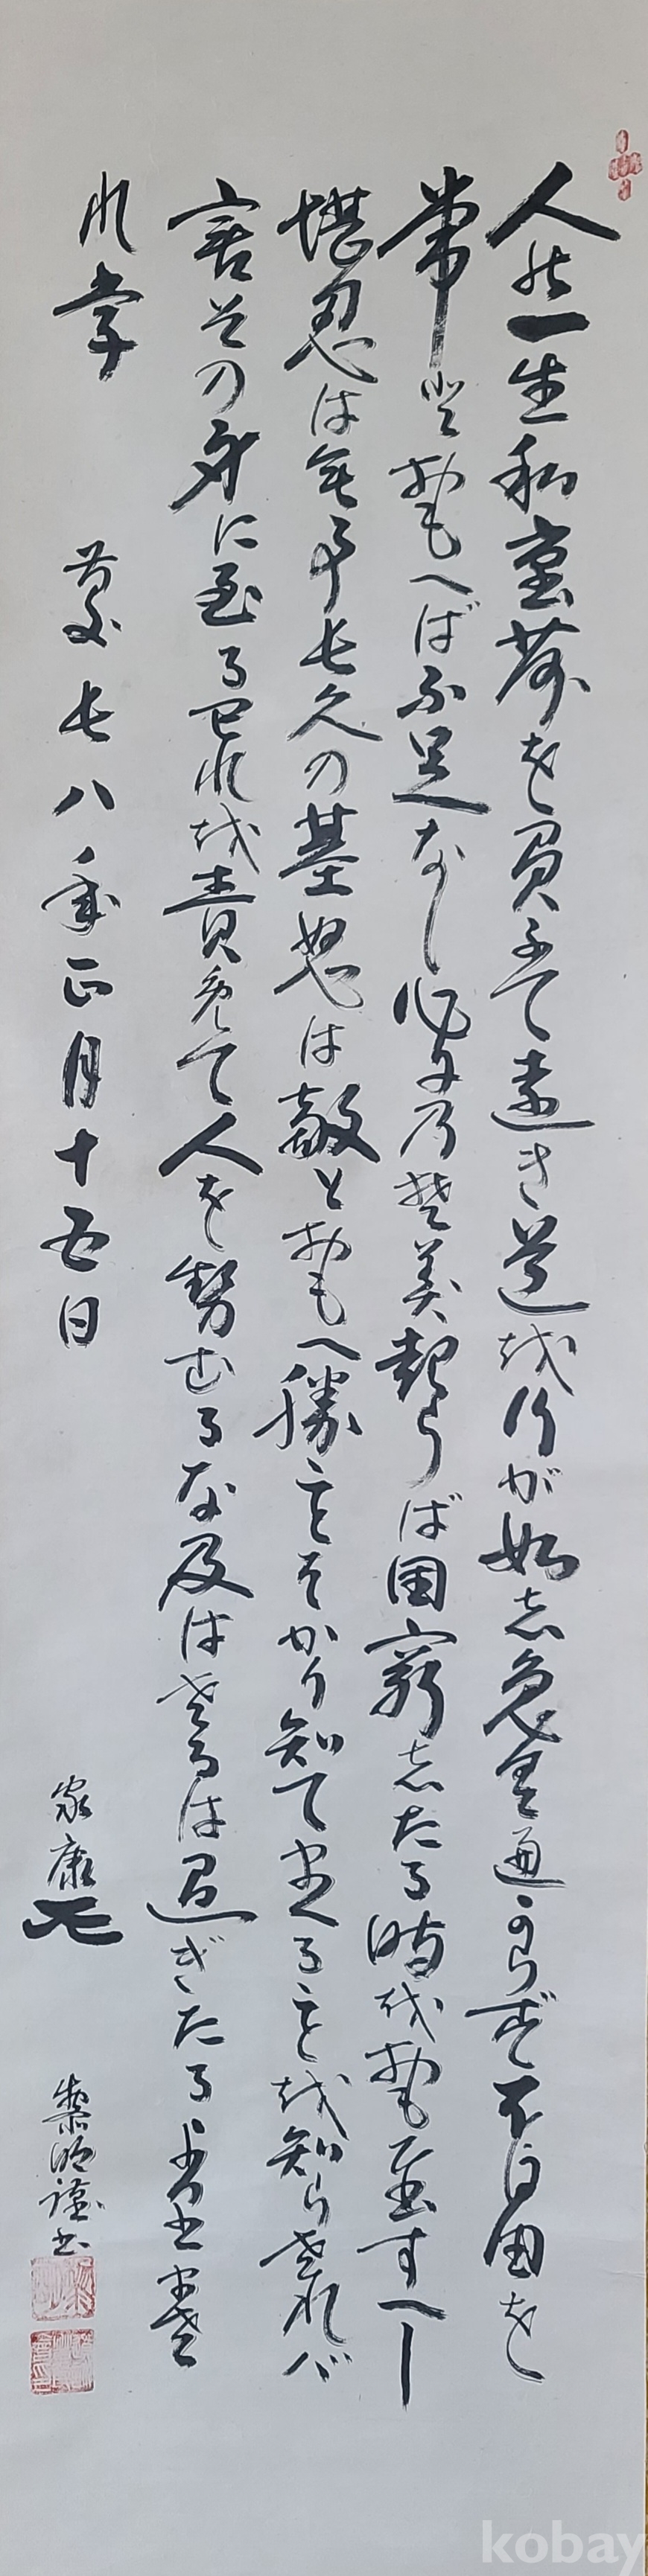 人の一生は重荷を負ふて遠き道を行が如し急ぐ遍可らず不自由を
常とおもへば不足なし心に乃ぞみ起らば困窮したる時をおもひ至すべし
堪忍は無事長久の基怒は敵とおもへ勝ことばかり知て負ることを知らざれバ
害その身に至る己れを責めて人を勢むるな及ばざるは過ぎたるよりまされ
り
慶長八年正月十五日
家康
謹書
kobay